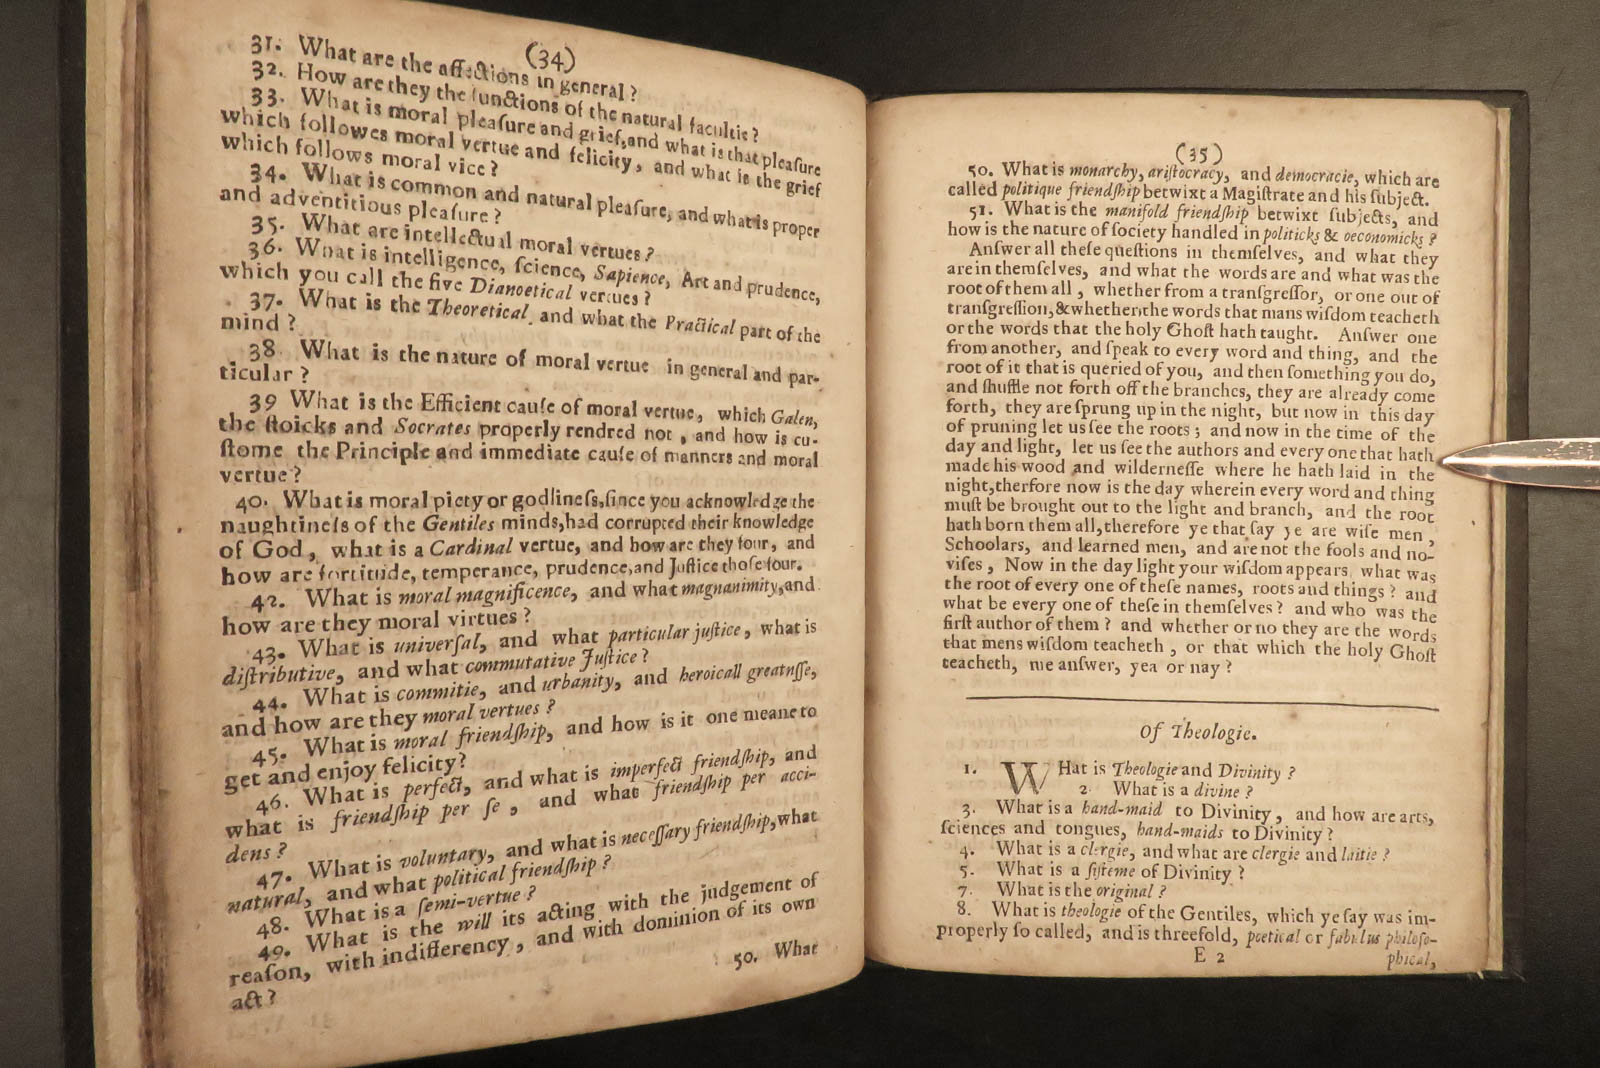 (34)
31. What are the affections in general ?
32. How are they the functions of the natural facultie ?
33. What is moral pleaſure and grief, and what is that pleaſure
which followes moral vertue and felicity, and what is the grief
which follows moral vice ?
34. What is common and natural pleaſure, and what is proper
and adventitious pleaſure ?
35. What are intellectual moral vertues ?
36. What is intelligence, ſcience, Sapience, Art and prudence,
which you call the five Dianoetical vertues ?
37. What is the Theoretical, and what the Practical part of the
mind ?
38 What is the nature of moral vertue in general and par-
ticular ?
39 What is the Efficient cauſe of moral vertue, which Galen,
the ſtoicks and Socrates properly rendred not, and how is cu-
ſtome the Principle and immediate cauſe of manners and moral
vertue ?
40. What is moral piety or godlineſs, ſince you acknowledge the
naughtineſs of the Gentiles minds, had corrupted their knowledge
of God, what is a Cardinal vertue, and how are they four, and
how are fortitude, temperance, prudence, and Juſtice thoſe four.
42. What is moral magnificence, and what magnanimity, and
how are they moral virtues ?
43. What is univerſal, and what particular juſtice, what is
diſtributive, and what commutative Juſtice ?
44. What is commitie, and urbanity, and heroicall greatnſſe,
and how are they moral vertues ?
45. What is moral friendſhip, and how is it one meane to
get and enjoy felicity?
46. What is perfect, and what is imperfect friendſhip, and
what is friendſhip per ſe, and what friendſhip per acci-
dens ?
47. What is voluntary, and what is neceſſary friendſhip, what
natural, and what political friendſhip ?
48. What is a ſemi-vertue ?
49. What is the will its acting with the judgement of
reaſon, with indifferency, and with dominion of its own
act ?
50. What
(35)
50. What is monarchy, ariſtocracy, and democracie, which are
called politique friendſhip betwixt a Magiſtrate and his ſubject.
51. What is the manifold friendſhip betwixt ſubjects, and
how is the nature of ſociety handled in politicks & oeconomicks ?
Anſwer all theſe queſtions in themſelves, and what they
are in themſelves, and what the words are and what was the
root of them all, whether from a tranſgreſſor, or one out of
tranſgreſſion, & whether the words that mans wiſdom teacheth
or the words that the holy Ghoſt hath taught. Anſwer one
from another, and ſpeak to every word and thing, and the
root of it that is queried of you, and then ſomething you do,
and ſhuffle not forth off the branches, they are already come
forth, they are ſprung up in the night, but now in this day
of pruning let us ſee the roots ; and now in the time of the
day and light, let us ſee the authors and every one that hath
made his wood and wilderneſſe where he hath laid in the
night, therfore now is the day wherein every word and thing
muſt be brought out to the light and branch, and the root
hath born them all, therefore ye that ſay ye are wiſe men,
Schoolars, and learned men, and are not the fools and no-
viſes, Now in the day light your wiſdom appears, what was
the root of every one of theſe names, roots and things ? and
what be every one of theſe in themſelves ? and who was the
firſt author of them ? and whether or no they are the words
that mens wiſdom teacheth, or that which the holy Ghoſt
teacheth, me anſwer, yea or nay ?
Of Theologie.
1. WHat is Theologie and Divinity ?
2 What is a divine ?
3. What is a hand-maid to Divinity, and how are arts,
ſciences and tongues, hand-maids to Divinity ?
4. What is a clergie, and what are clergie and laitie ?
5. What is a ſiſteme of Divinity ?
7. What is the original ?
8. What is theologie of the Gentiles, which ye ſay was im-
properly ſo called, and is threefold, poetical or fabulus philoſo-
E 2
phical,